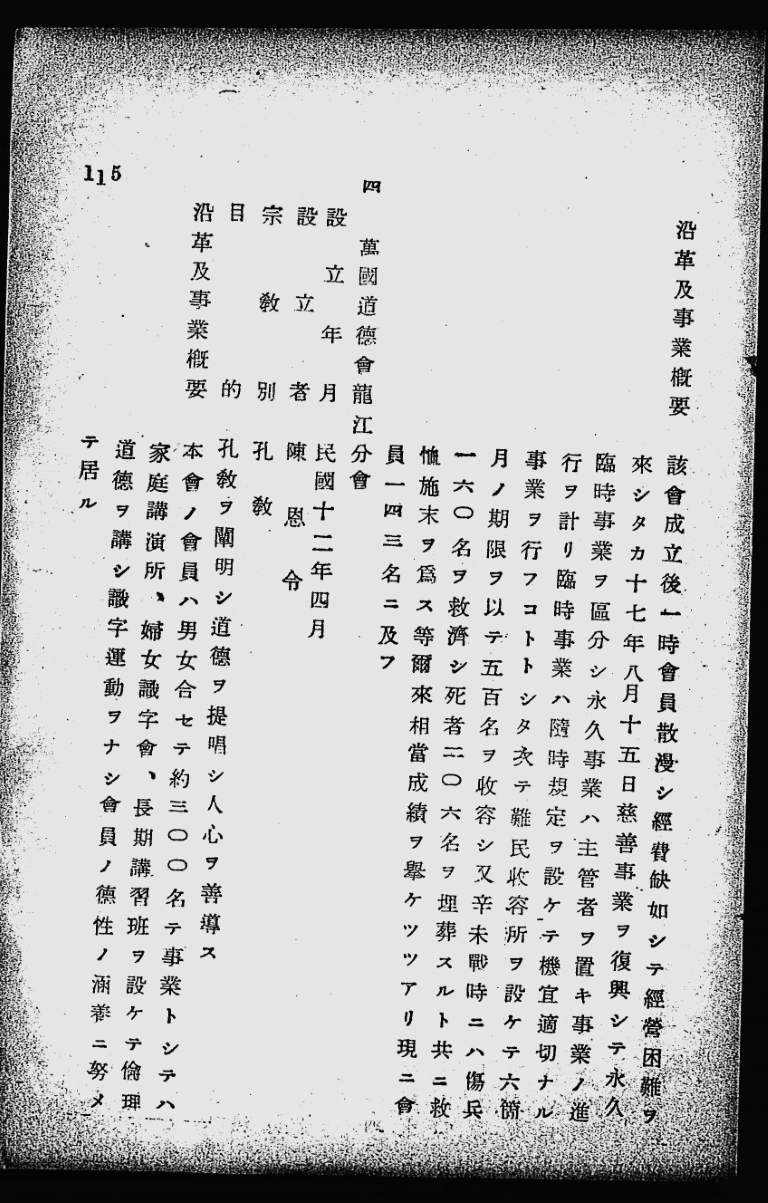 沿革及事業概要
該會成立後一時會員散漫シ經費缺如シテ經營困難ヲ
來シタカ十七年八月十五日慈善事業ヲ復興シテ永久
臨時事業ヲ區分シ永久事業ハ主管者ヲ置キ事業ノ進
行ヲ計リ臨時事業ハ隨時規定ヲ設ケテ機宜適切ナル
事業ヲ行フコトトシタ次テ難民收容所ヲ設ケテ六箇
月ノ期限ヲ以テ五百名ヲ收容シ又辛未戰時ニハ傷兵
一六〇名ヲ救濟シ死者二〇六名ヲ埋葬スルト共ニ救
恤施末ヲ爲ス等爾來相當成績ヲ擧ケツツアリ現ニ會
員一四三名ニ及フ
四 萬國道德會龍江分會
設立年月 民國十二年四月
設立者 陳恩令
宗教別 孔教
目的 孔教ヲ闡明シ道德ヲ提唱シ人心ヲ善導ス
沿革及事業概要 本會ノ會員ハ男女合セテ約三〇〇名テ事業トシテハ
家庭講演所、婦女識字會、長期講習班ヲ設ケテ倫理
道德ヲ講シ識字運動ヲナシ會員ノ德性ノ涵養ニ努メ
テ居ル
115